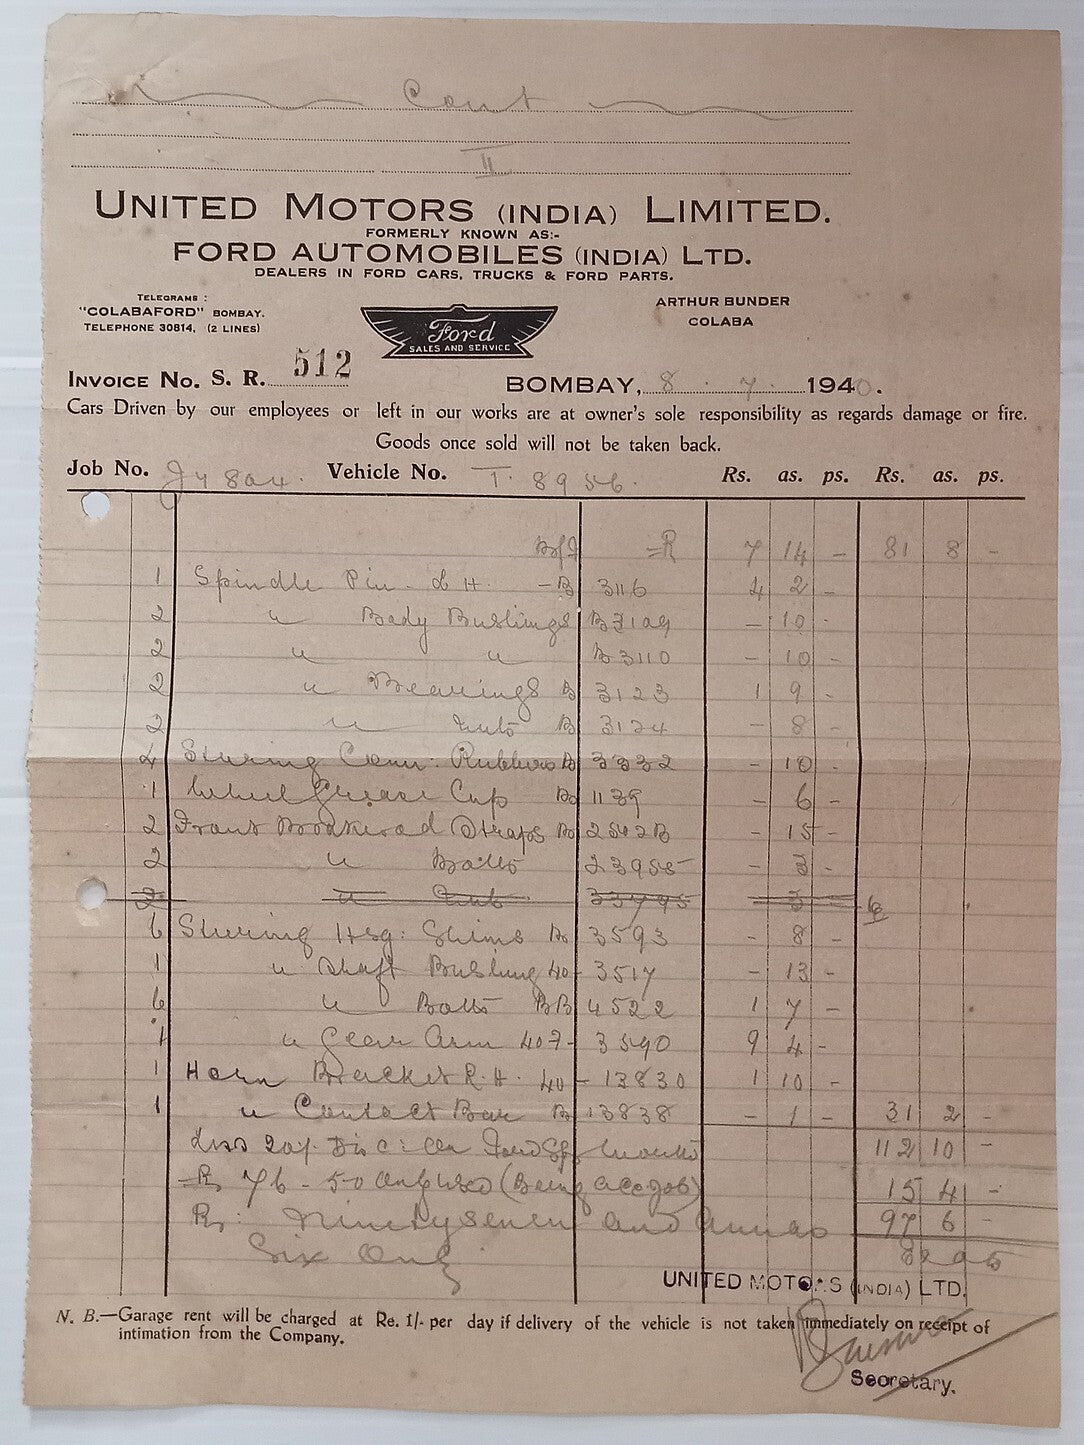 Cont
II
UNITED MOTORS (INDIA) LIMITED.
FORMERLY KNOWN AS:-
FORD AUTOMOBILES (INDIA) LTD.
DEALERS IN FORD CARS, TRUCKS & FORD PARTS.
TELEGRAMS :
"COLABAFORD" BOMBAY.
TELEPHONE 30814, (2 LINES)
Ford
SALES AND SERVICE
ARTHUR BUNDER
COLABA
INVOICE NO. S. R. 512
BOMBAY, 8 . 7 . 1940.
Cars Driven by our employees or left in our works are at owner's sole responsibility as regards damage or fire.
Goods once sold will not be taken back.
Job No. Jy 804. Vehicle No. T. 8956. Rs. as. ps. Rs. as. ps.
B/f 7 14 - 81 8 -
1 Spindle Pin - L H. - B 3116 4 2 -
2 " Body Bushings B 3109 - 10 -
2 " " B 3110 - 10 -
2 " Bearings B 3123 1 9 -
2 " Nuts B 3124 - 8 -
4 Steering Conn: Rubbers B 3332 - 10 -
1 Wheel Grease Cup B 1139 - 6 -
2 Front Brakerod Straps B 2542B - 15 -
2 " Bolts 23955 - 3 -
2 " Nuts 33795 - 3 -
6 Steering Hsg: Shims B 3593 - 8 -
1 " Shaft Bushing 40 - 3517 - 13 -
6 " Bolts BB 4522 1 7 -
1 " Gear Arm 407 - 3590 9 4 -
1 Horn Bracket R.H. 40 - 13830 1 10 -
1 " Contact Bar B 13838 - 1 - 31 2 -
Less 20% Disc: on Ford 112 10 -
Rs 76 - 50 only (Being acc job) 15 4 -
Rs: Ninety seven and annas 97 6 -
Six Only
UNITED MOTORS (INDIA) LTD.
N. B.—Garage rent will be charged at Re. 1/- per day if delivery of the vehicle is not taken immediately on receipt of
intimation from the Company.
Secretary.